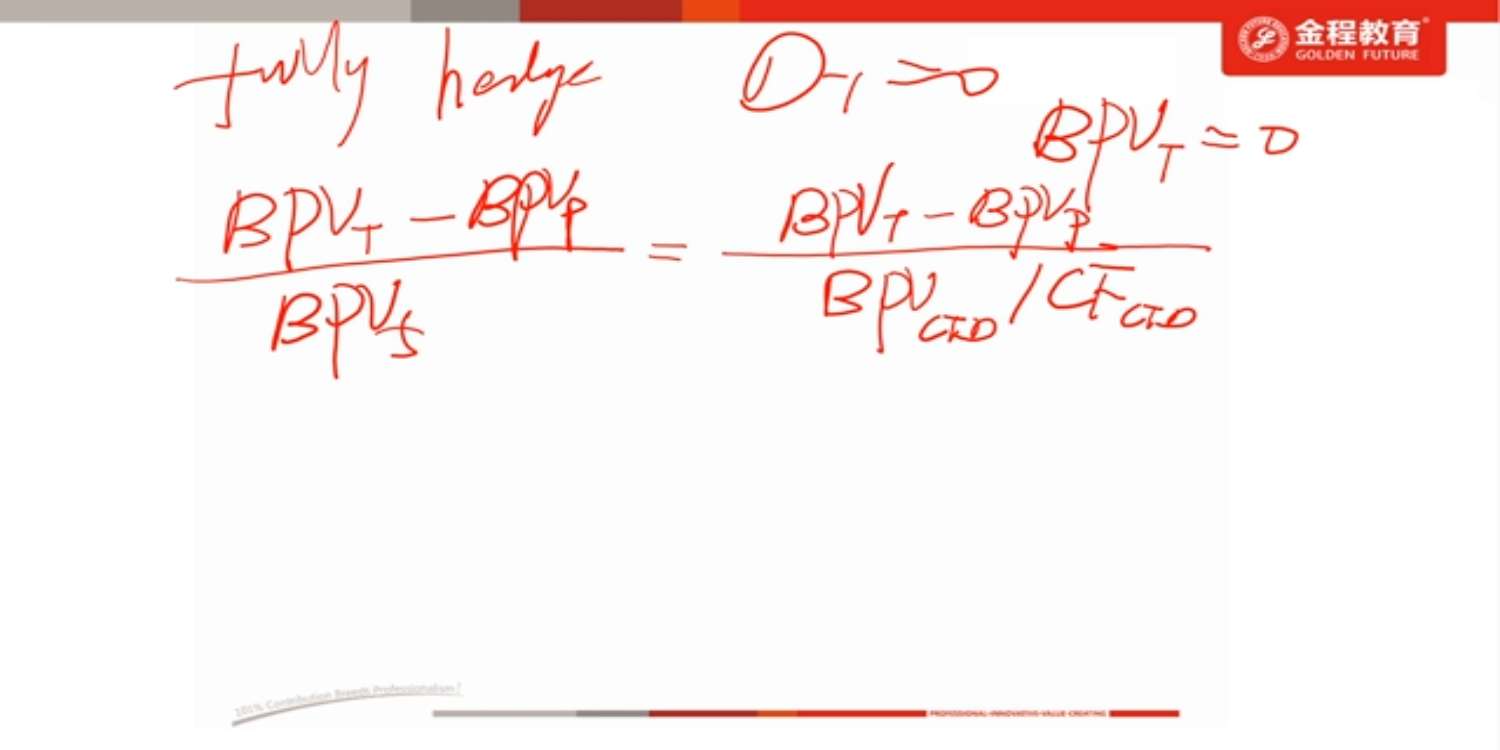 金程教育
GOLDEN FUTURE
fully hedge D_T = 0
BPV_T = 0
BPV_T - BPV_P / BPV_S = BPV_T - BPV_P / BPV_CTD / CF_CTD
101% Contribution Breeds Professionalism!
PROFESSIONAL·INNOVATIVE·VALUE-CREATING